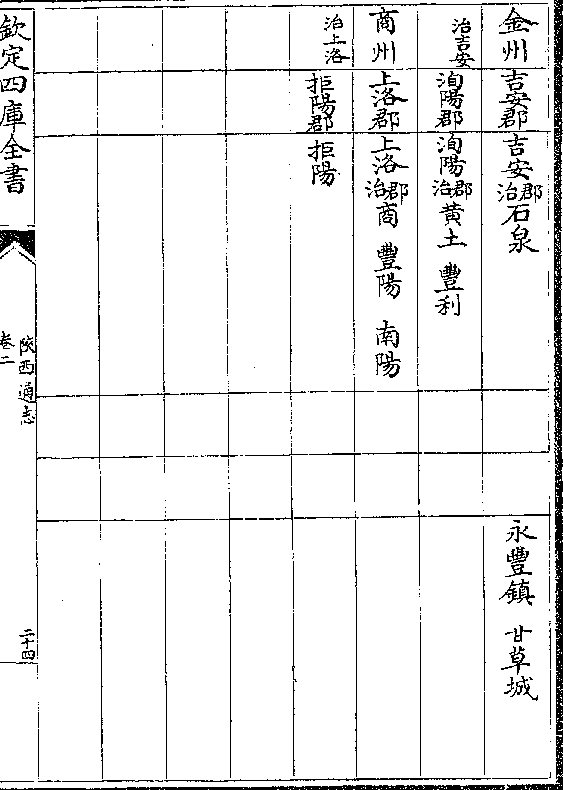 金州 吉安郡 吉安郡治 石泉 永豐鎮 甘草城
治吉安 洵陽郡 洵陽郡治 黄土 豐利
商州 上洛郡 上洛郡治 商 豐陽 南陽
治上洛 拒陽郡 拒陽
欽定四庫全書
陜西通志
卷二
二十四